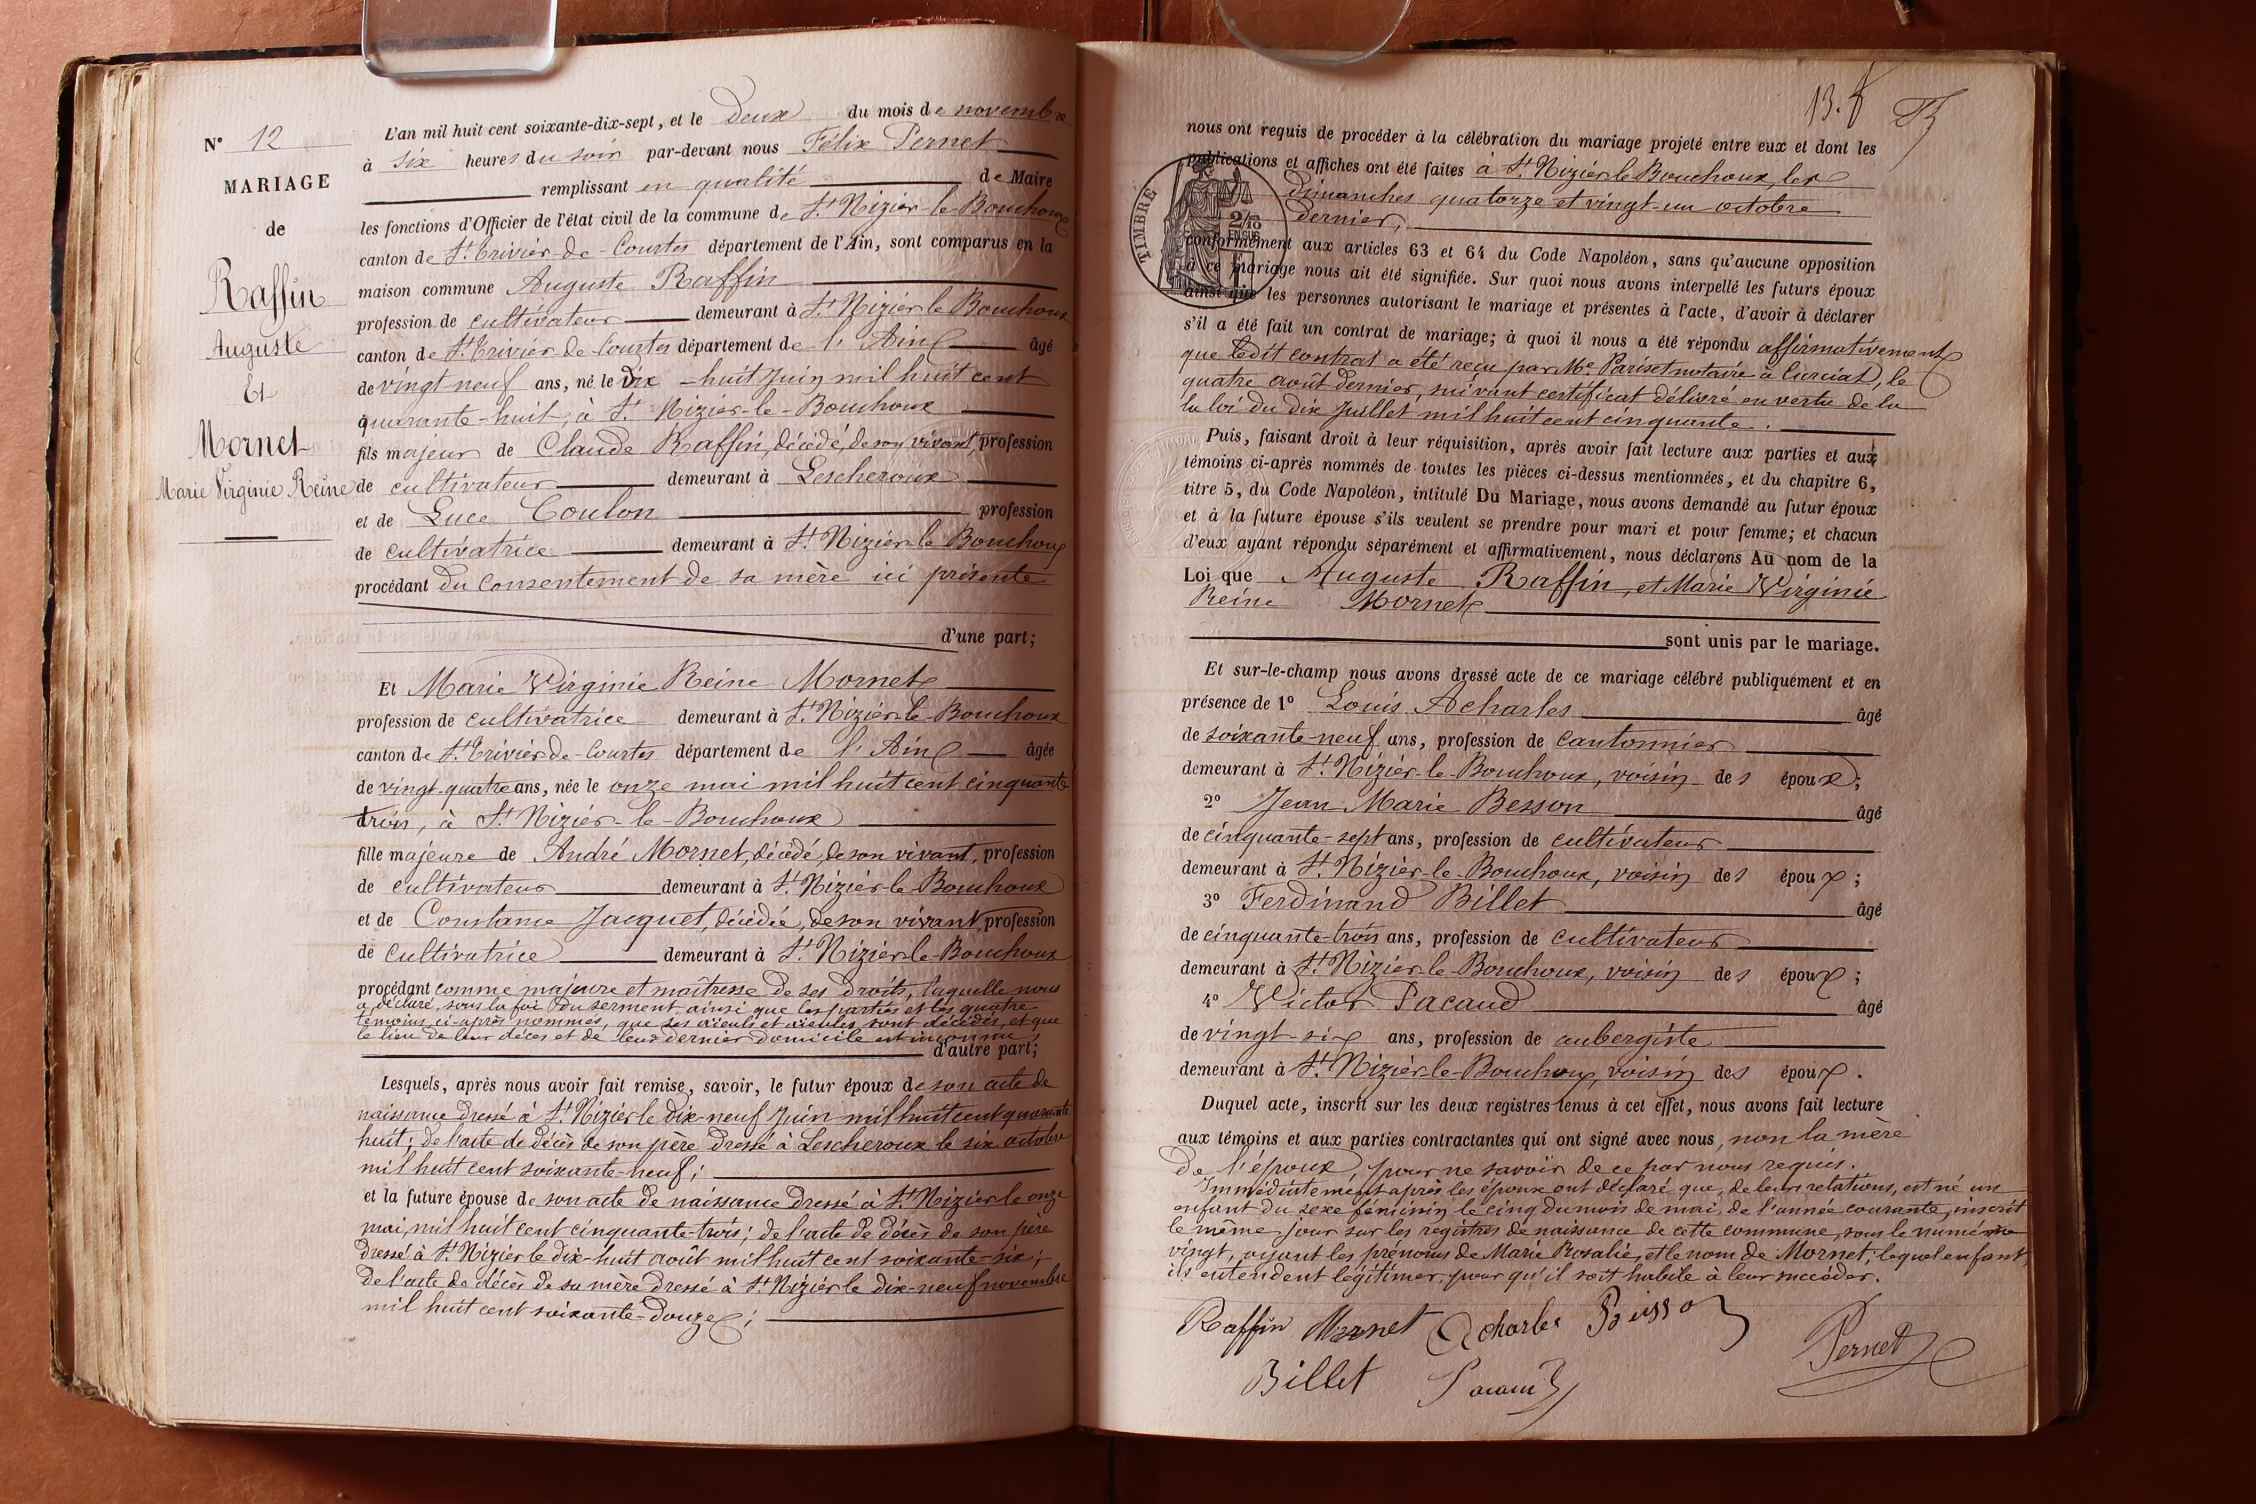 N° 12
MARIAGE
de
Raffin
Auguste
Et
Mornet
Marie Virginie Reine
L'an mil huit cent soixante-dix-sept, et le Deux du mois de novembre
à six heures du soir par-devant nous Félix Pernet
remplissant en qualité de Maire
les fonctions d'Officier de l'état civil de la commune de St Nizier-le-Bouchoux
canton de St Trivier-de-Courtes département de l'Ain, sont comparus en la
maison commune Auguste Raffin
profession de cultivateur demeurant à St Nizier le Bouchoux
canton de St Trivier de Courtes département de l'Ain âgé
de vingt neuf ans, né le dix-huit Juin mil huit cent
quarante-huit, à St Nizier-le-Bouchoux
fils majeur de Claude Raffin, décédé, de son vivant, profession
de cultivateur demeurant à Lescheroux
et de Luce Coulon profession
de cultivatrice demeurant à St Nizier-le-Bouchoux
procédant du consentement de sa mère ici présente
d'une part;
Et Marie Virginie Reine Mornet
profession de cultivatrice demeurant à St Nizier-le-Bouchoux
canton de St Trivier-de-Courtes département de l'Ain âgée
de vingt-quatre ans, née le onze mai mil huit cent cinquante
trois, à St Nizier-le-Bouchoux
fille majeure de André Mornet, décédé, de son vivant, profession
de cultivateur demeurant à St Nizier-le-Bouchoux
et de Constance Jacquet, décédée, de son vivant, profession
de cultivatrice demeurant à St Nizier-le-Bouchoux
procédant comme majeure et maîtresse de ses droits, laquelle nous
a déclaré, sous la foi du serment, ainsi que les parties et les quatre
témoins ci-après nommés, que ses aïeuls et aïeules sont décédés, et que
le lieu de leur décès et de leur dernier domicile est inconnu,
d'autre part;
Lesquels, après nous avoir fait remise, savoir, le futur époux de son acte de
naissance dressé à St Nizier le dix-neuf Juin mil huit cent quarante
huit; de l'acte de décès de son père dressé à Lescheroux le six octobre
mil huit cent soixante-neuf;
et la future épouse de son acte de naissance dressé à St Nizier le onze
mai, mil huit cent cinquante-trois; de l'acte de décès de son père
dressé à St Nizier le dix-huit août mil huit cent soixante-six;
de l'acte de décès de sa mère dressé à St Nizier le dix-neuf novembre
mil huit cent soixante-douze;
13.
nous ont requis de procéder à la célébration du mariage projeté entre eux et dont les
publications et affiches ont été faites à St Nizier le Bouchoux, les
dimanches quatorze et vingt-un octobre
dernier,
TIMBRE
conformément aux articles 63 et 64 du Code Napoléon, sans qu'aucune opposition
à ce mariage nous ait été signifiée. Sur quoi nous avons interpellé les futurs époux
ainsi que les personnes autorisant le mariage et présentes à l'acte, d'avoir à déclarer
s'il a été fait un contrat de mariage; à quoi il nous a été répondu affirmativement
que Ledit contrat a été reçu par Me Pariset notaire à Curciat, le
quatre août dernier, suivant certificat délivré en vertu de la
la loi du dix Juillet mil huit cent cinquante.
Puis, faisant droit à leur réquisition, après avoir fait lecture aux parties et aux
témoins ci-après nommés de toutes les pièces ci-dessus mentionnées, et du chapitre 6,
titre 5, du Code Napoléon, intitulé Du Mariage, nous avons demandé au futur époux
et à la future épouse s'ils veulent se prendre pour mari et pour femme; et chacun
d'eux ayant répondu séparément et affirmativement, nous déclarons Au nom de la
Loi que Auguste Raffin, et Marie Virginie
Reine Mornet
sont unis par le mariage.
Et sur-le-champ nous avons dressé acte de ce mariage célébré publiquement et en
présence de 1° Louis Acharles âgé
de soixante-neuf ans, profession de cantonnier
demeurant à St Nizier-le-Bouchoux, voisin des époux;
2° Jean Marie Besson âgé
de cinquante-sept ans, profession de cultivateur
demeurant à St Nizier-le-Bouchoux, voisin des époux;
3° Ferdinand Billet âgé
de cinquante-trois ans, profession de cultivateur
demeurant à St Nizier-le-Bouchoux, voisin des époux;
4° Victor Pacaud âgé
de vingt-six ans, profession de aubergiste
demeurant à St Nizier-le-Bouchoux, voisin des époux.
Duquel acte, inscrit sur les deux registres tenus à cet effet, nous avons fait lecture
aux témoins et aux parties contractantes qui ont signé avec nous, non la mère
de l'époux, pour ne savoir de ce par nous requis.
Immédiatement après les époux ont déclaré que, de leurs relations, est né un
enfant du sexe féminin le cinq du mois de mai, de l'année courante, inscrit
le même jour sur les registres de naissance de cette commune, sous le numéro
vingt, ayant les prénoms de Marie Rosalie, et le nom de Mornet, lequel enfant
ils entendent légitimer, pour qu'il soit habile à leur succéder.
Raffin Mornet Acharles Besson
Pernet
Billet Pacaud